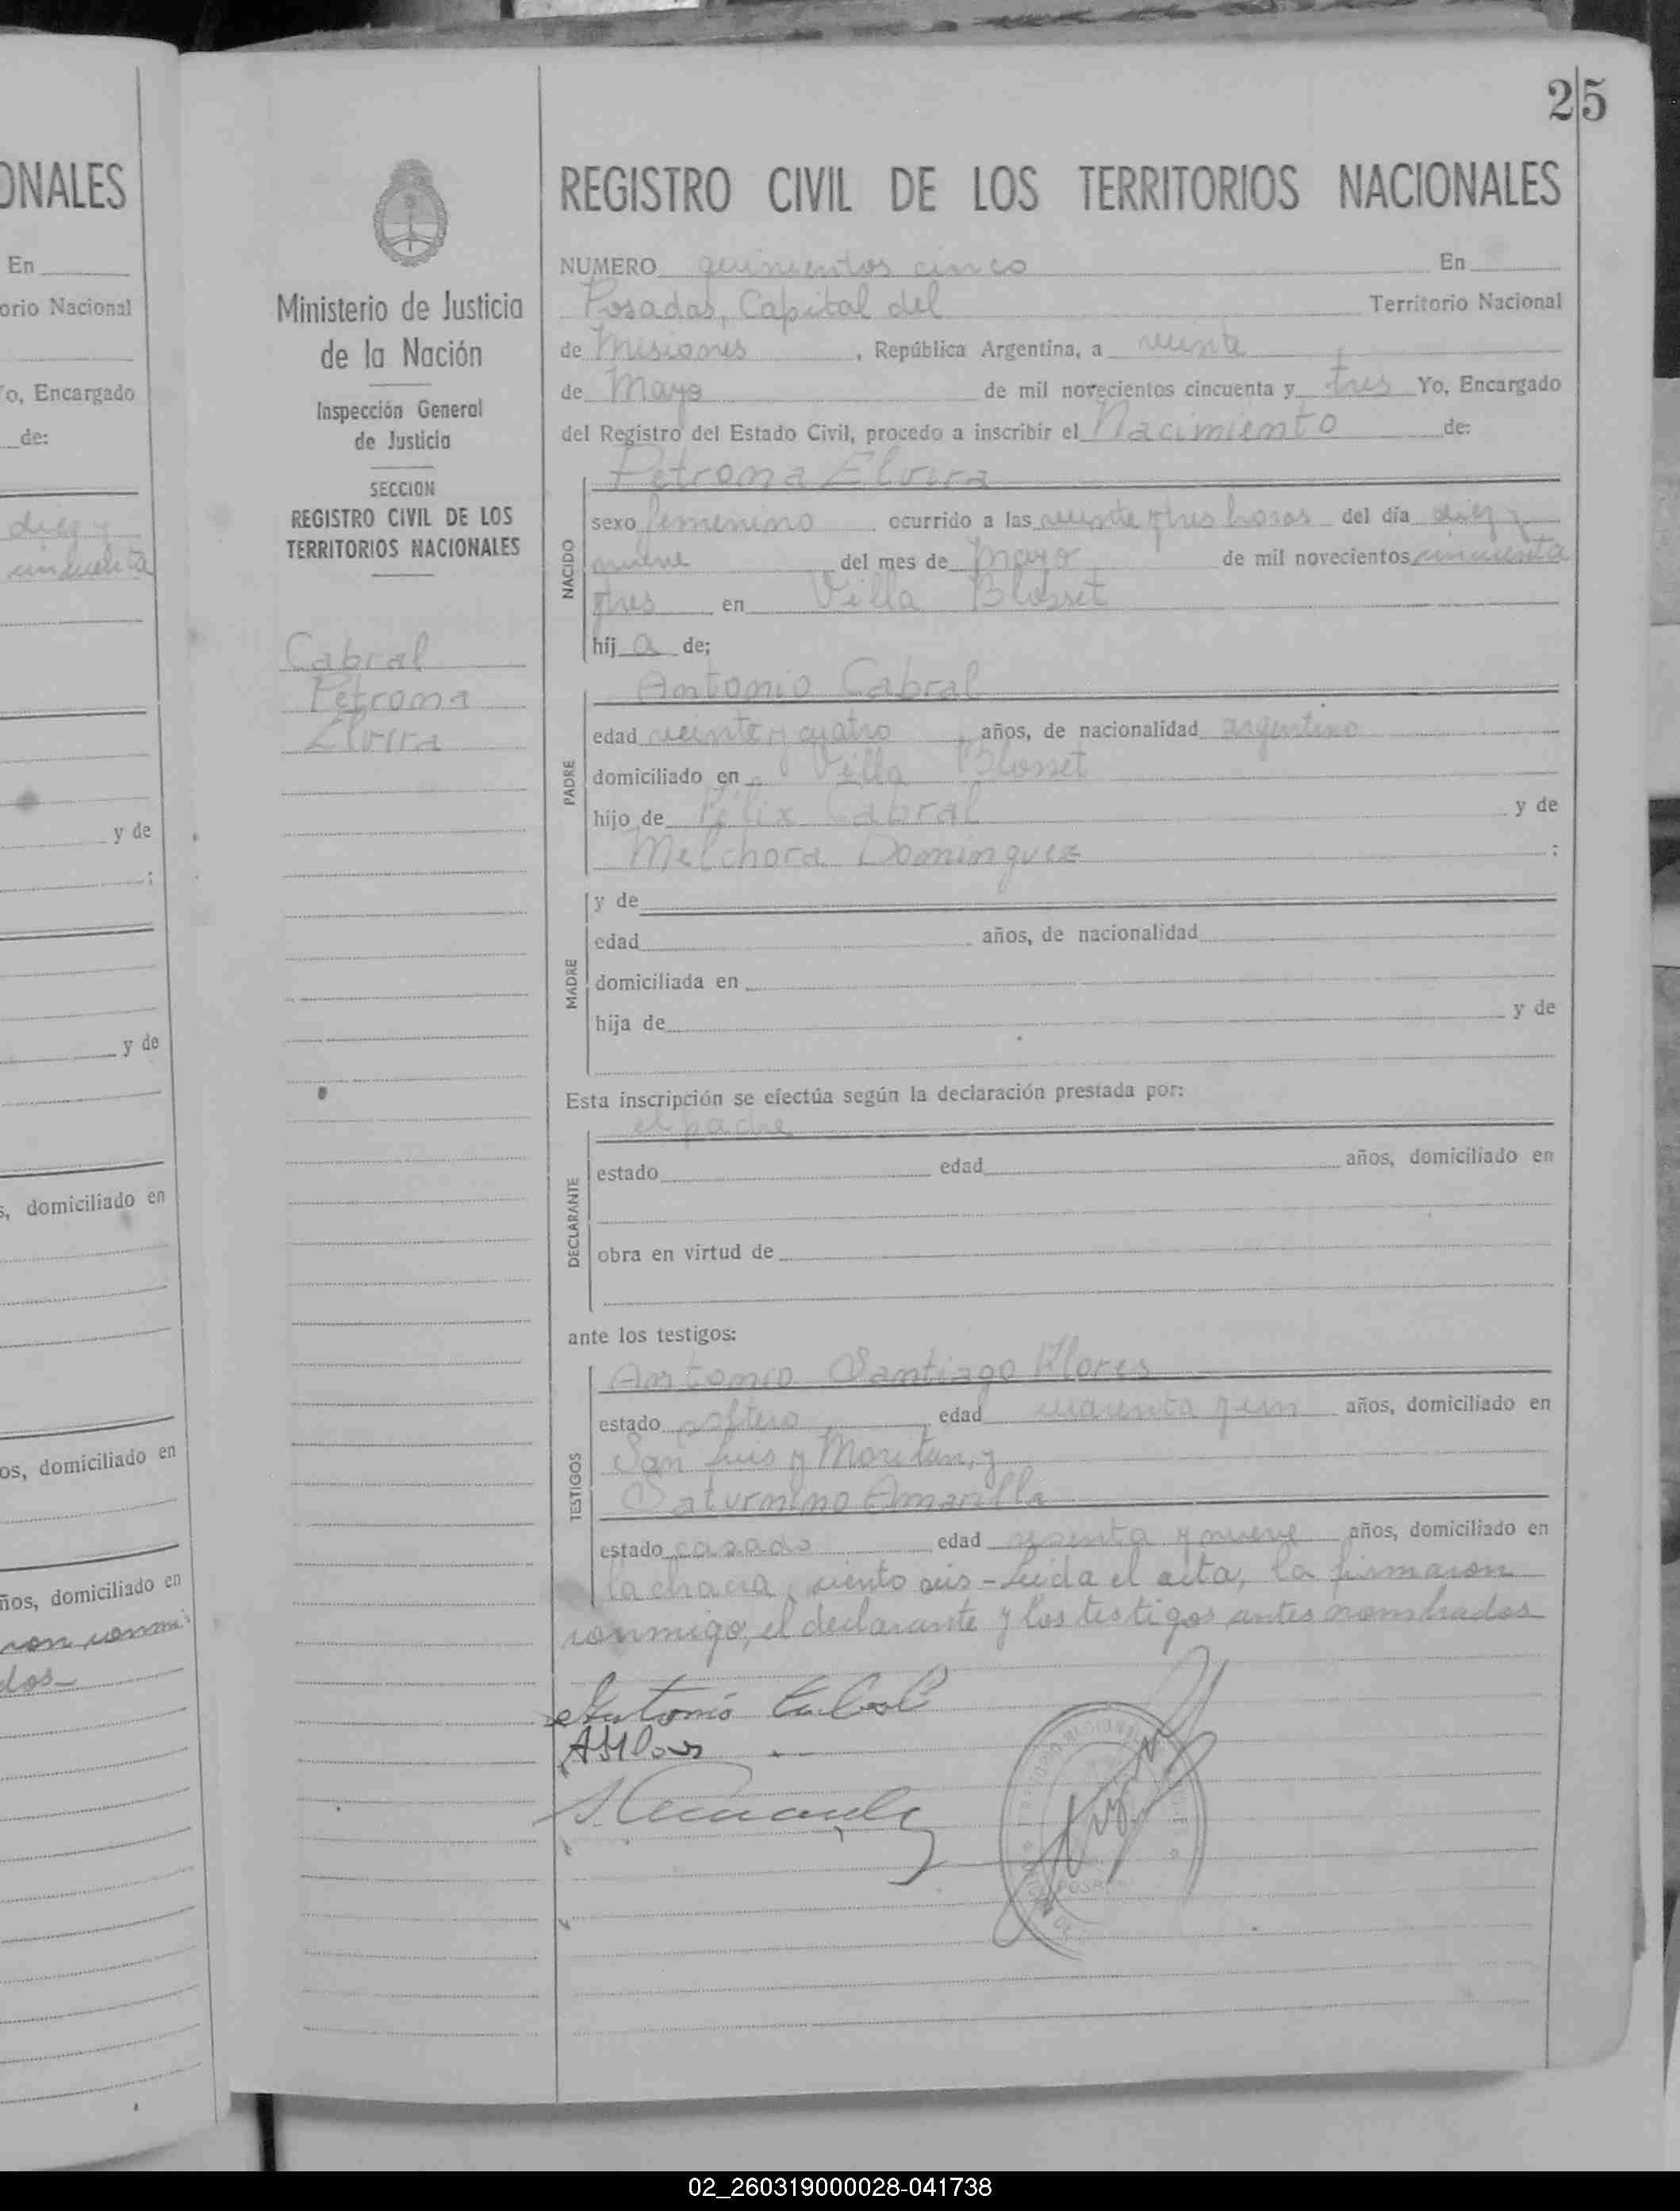 25
ONALES
En
orio Nacional
Yo, Encargado
de:
diez y
cincuenta
y de
y de
s, domiciliado en
os, domiciliado en
ños, domiciliado en
ron conmi
dos
Ministerio de Justicia
de la Nación
Inspección General
de Justicia
SECCION
REGISTRO CIVIL DE LOS
TERRITORIOS NACIONALES
Cabral
Petrona
Elvira
REGISTRO CIVIL DE LOS TERRITORIOS NACIONALES
NUMERO quinientos cinco En
Posadas, Capital del Territorio Nacional
de Misiones, República Argentina, a veinte
de Mayo de mil novecientos cincuenta y tres Yo, Encargado
del Registro del Estado Civil, procedo a inscribir el Nacimiento de:
Petrona Elvira
NACIDO
sexo femenino ocurrido a las veinte y tres horas del día diez y
nueve del mes de Mayo de mil novecientos cincuenta
ytres en Villa Blosset
hij a de;
Antonio Cabral
PADRE
edad veinte y cuatro años, de nacionalidad argentino
domiciliado en Villa Blosset
hijo de Félix Cabral y de
Melchora Dominguez :
MADRE
y de
edad años, de nacionalidad
domiciliada en
hija de y de
Esta inscripción se efectúa según la declaración prestada por:
el padre
DECLARANTE
estado edad años, domiciliado en
obra en virtud de
ante los testigos:
TESTIGOS
Antonio Santiago Flores
estado soltero edad cuarenta y un años, domiciliado en
San Luis y Moritan, y
Saturnino Amarilla
estado casado edad sesenta y nueve años, domiciliado en
la chacra ciento seis - Leida el acta, la firmaron
conmigo, el declarante y los testigos antes nombrados
Antonio Cabral
02_260319000028-041738